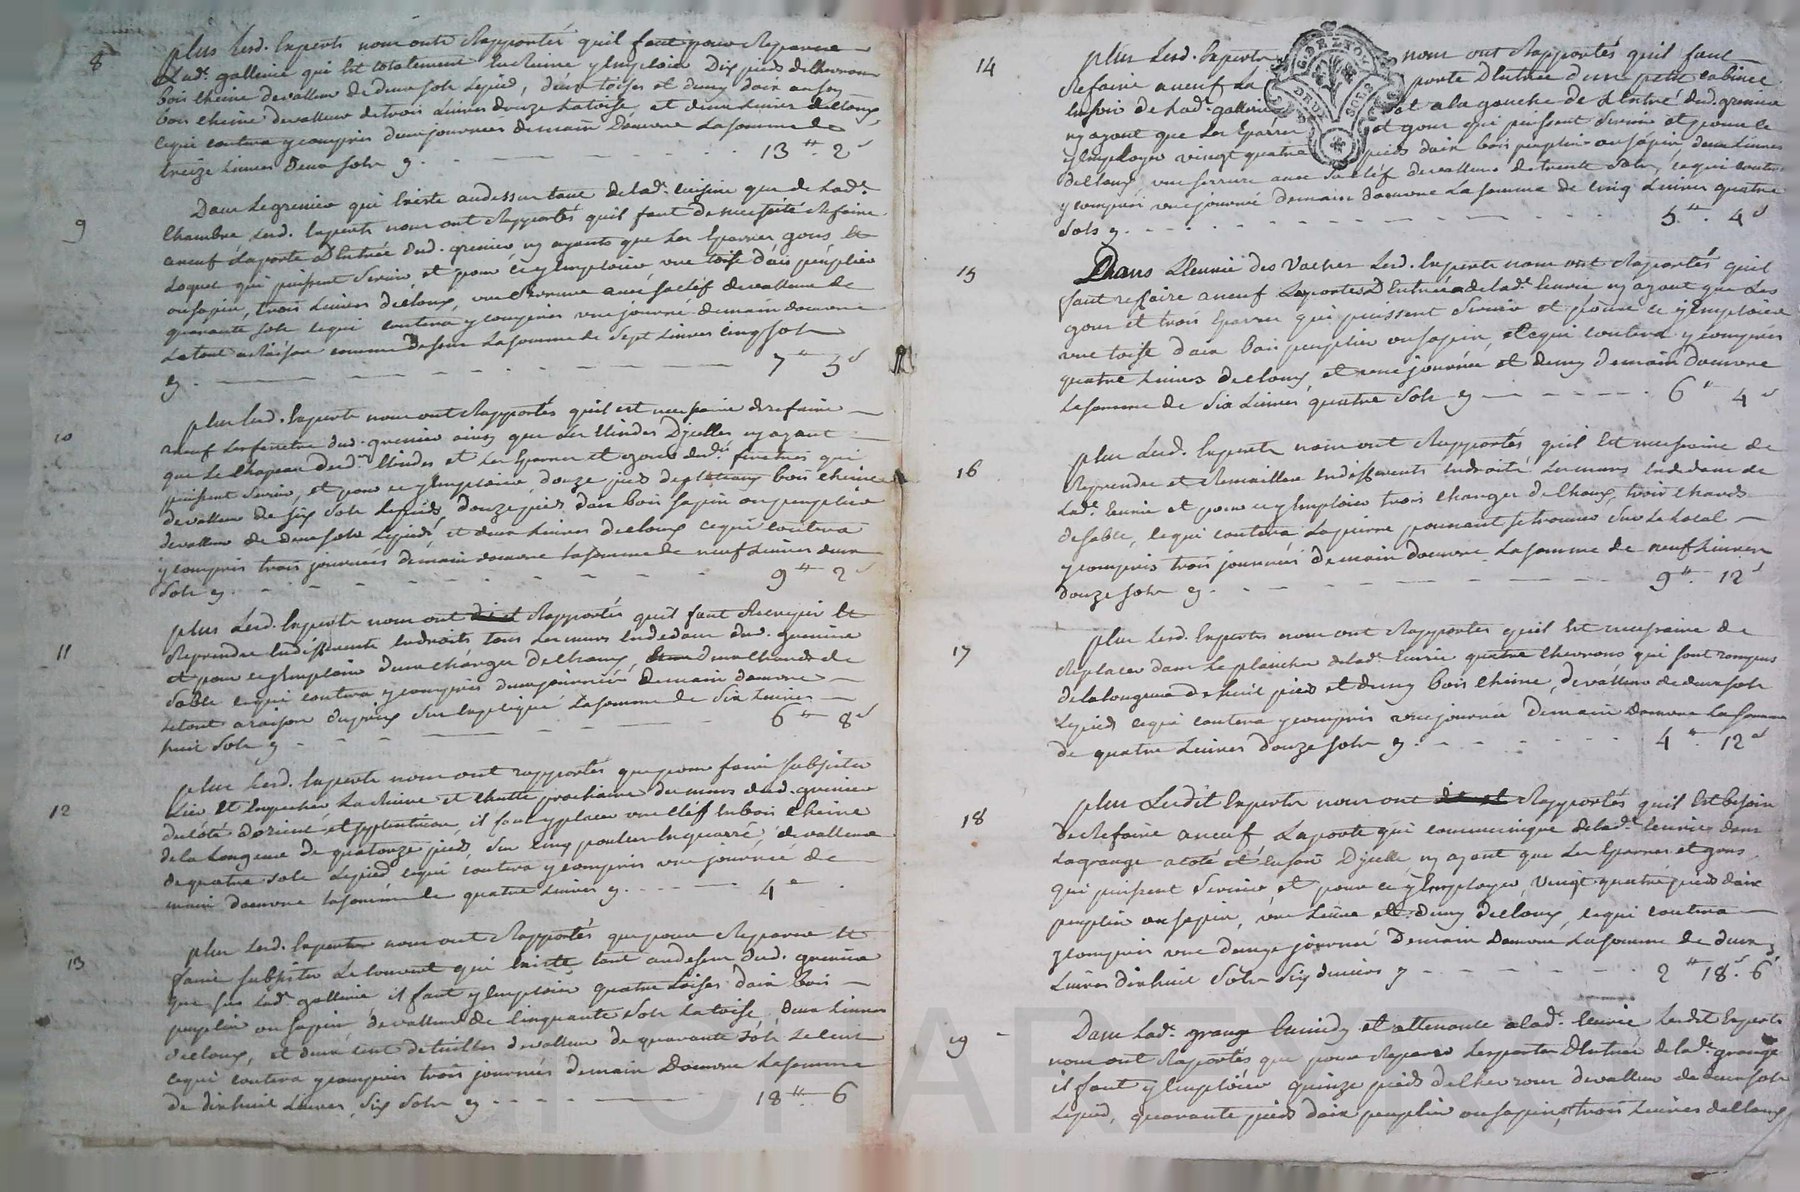 8
plus Lesd. Experts nous onts Rapportés quil faut pour Reparer
Lad.e gallerie qui Est totalement En Ruine y Emploier Dix pieds de Chevrons
bois Cheine de valleur de deux sols Le pied, deux toises et demy daix
bois Cheine de valleur de trois Livres douze La toise et deux Livres de Cloux,
ce qui coutera y compris deux journées de main Doeuvre La somme de
treize Livres Deux sols 13 tt 2 s
9
Dans Le grenier qui Existe au dessus tant de lad.e cuisine que de Lad.e
Chambre, Lesd. Experts nous ont Rapportés quil faut de necessité Refaire
a neuf La porte D'Entrée dud. grenier ny ayants que Les Eparres gons et
Loquet qui puissent Servir et pour ce y Emploier une toise d'aix peuplier
ou sapin, trois Livres de Cloux, une Serrure avec sa clef de valleur de
quarante sols ce qui coutera y compris une journée de main doeuvre
Le tout a Raison comme Dessus La somme de Sept Livres cinq sols
7 tt 5 s
10
plus Lesd. Experts nous ont Rapportés quil est necessaire de refaire
neuf Les fenetres dud. grenier ainsy que Les Dyelles ny ayant
que Le Chapeau desd. et Les Eparres et gons desd. fenetres qui
puissent Servir, et pour ce y Emploier douze pieds de plateaux bois Cheine
de valleur de six sols Le pied, douze pieds daix bois Sapin ou peuplier
de valleur de deux sols Le pied, et deux Livres de Cloux ce qui coutera
y compris trois journées de main doeuvre La somme de neuf Livres deux
Sols 9 tt 2 s
11
plus Lesd. Experts nous ont Rapportés quil faut Recrepir Et
Reprendre En differents Endroits tous Les murs En dedans dud. grenier
et pour ce y Emploier deux charges de Chaux, deux Chards de
Sable ce qui coutera y compris deux journées de main doeuvre
Le tout a raison du prix Sus Expliqué La somme de Six Livres
huit Sols 6 tt 8 s
12
plus Lesd. Experts nous ont rapportés que pour faire subsister
Lier Et Empecher La Ruine et Chutte prochaine du murs dud. grenier
du coté d'orient et septentrion, il faut y placer une Clef en bois Cheine
de la Longueur de quatorze pieds, Sur cinq pouces En quarré, de valleur
de quatre sols Le pied ce qui coutera y compris une journée de
main doeuvre La somme de quatre Livres 4 tt
13
plus Lesd. Experts nous ont Rapportés que pour Reparer Et
faire subsister Le Couvert qui Existe tant au dessus dud. grenier
que sur Lad.e gallerie il faut y Emploier quatre toises daix bois
peuplier ou sapin de valleur de cinquante sols La toise, deux Livres
de Cloux, et deux cent de tuilles de valleur de quarante sols Le cent
ce qui coutera y compris trois journées de main Doeuvre La somme
de dix huit Livres, Six Sols 18 tt 6
14
plus Lesd. Experts nous ont Rapportés quil faut
Refaire a neuf La porte D'Entrée d'un petit Cabinet
de Lad.e gallerie et a la gauche de L'Entrée dud. grenier
ny ayant que Les Eparres et gons qui puissent Servir et pour ce
y Employer vingt quatre pieds daix bois peuplier ou sapin deux Livres
de Cloux, une serrure avec Sa Clef de valleur de trente sols, ce qui coutera
y compris une journée de main doeuvre La somme de cinq Livres quatre
Sols 5 tt 4 s
GD. DE LYON
DEUX SOLS
15
Dans L'Ecurie des Vaches Lesd. Experts nous ont Raportés quil
faut reffaire a neuf La porte D'Entrée de lad.e Ecurie ny ayant que Les
gons et trois Eparres qui puissent Servir et pour ce y Emploier
une toise daix bois peuplier ou sapin, ce qui coutera y compris
quatre Livres de Cloux, et une journée et demy de main Doeuvre
La somme de Six Livres quatre Sols 6 tt 4 s
16
plus Lesd. Experts nous ont Rapportés, quil Est necessaire de
Reprendre et Remailler En differents Endroits, Les murs En dedans de
Lad.e Ecurie et pour ce y Emploier trois Charges de Chaux, trois Chards
de Sable, ce qui coutera La pierre pouvant se trouver Sur Le Local
y compris trois journées de main Doeuvre La somme de neuf Livres
douze Sols 9 tt 12 s
17
plus Lesd. Experts nous ont Rapportés quil Est necessaire de
Replacer dans Le plancher de lad.e Ecurie quatre Chevrons qui sont rompus
de la longueur de huit pieds et demy bois Cheine, de valleur de deux sols
Le pied ce qui coutera y compris une journée de main Doeuvre La somme
de quatre Livres douze sols 4 tt 12 s
18
plus Lesdit Experts nous ont Rapportés quil Est besoin
de Refaire a neuf La porte qui communique de lad.e Ecurie dans
La grange a coté Dyelle, ny ayant que Les Eparres et gons
qui puissent Servir et pour ce y Employer, Vingt quatre pieds daix
peuplier ou sapin, une Livre et demy de Cloux, ce qui coutera
y compris une demye journée de main Doeuvre La somme de deux
Livres dix huit Sols Six deniers 2 tt 18 s 6
19
Dans Lad.e grange et attenante a lad.e Ecurie Lesdit Experts
nous ont Rapportés que pour Reparer Les portes D'Entrée de lad.e grange
il faut y Emploier quinze pieds de Chevrons de valleur de deux sols
Le pied, quarante pieds daix peuplier ou sapin, trois Livres de Cloux